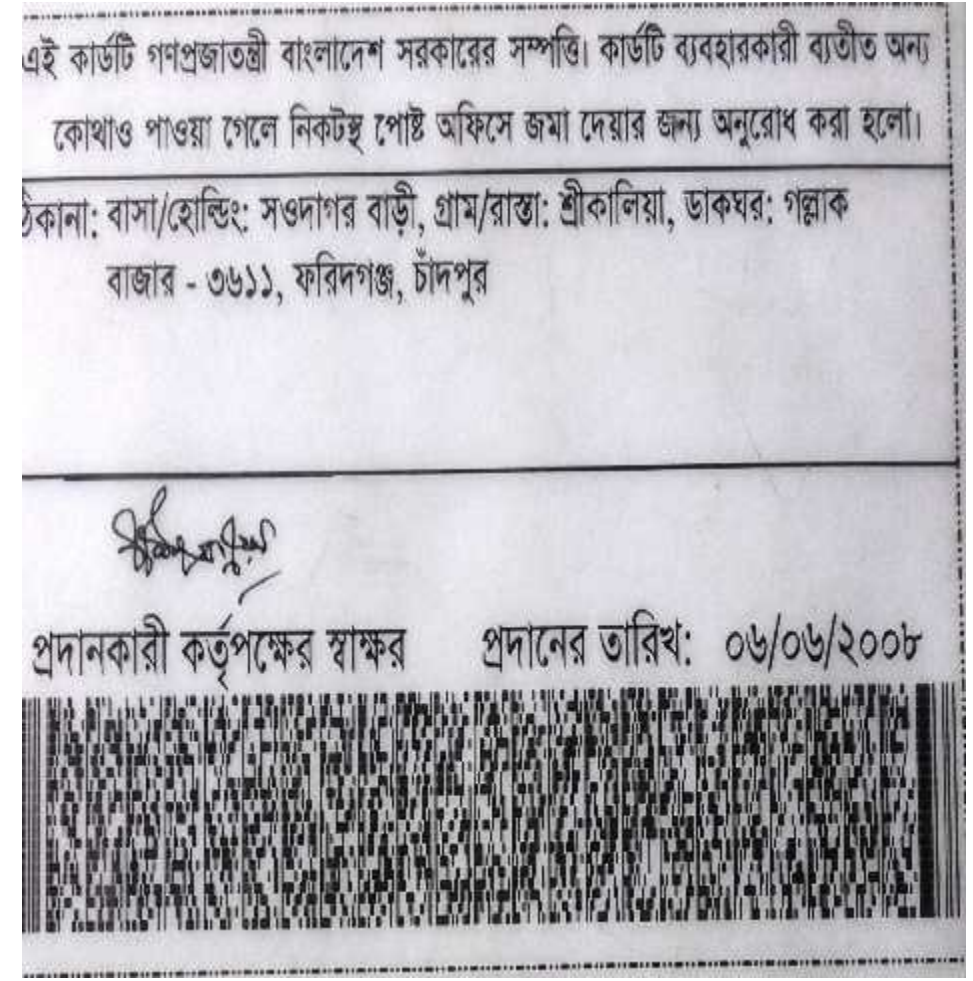 এই কার্ডটি গণপ্রজাতন্ত্রী বাংলাদেশ সরকারের সম্পত্তি। কার্ডটি ব্যবহারকারী ব্যতীত অন্য
কোথাও পাওয়া গেলে নিকটস্থ পোষ্ট অফিসে জমা দেয়ার জন্য অনুরোধ করা হলো।
ঠিকানা: বাসা/হোল্ডিং: সওদাগর বাড়ী, গ্রাম/রাস্তা: শ্রীকালিয়া, ডাকঘর: গল্লাক
বাজার - ৩৬১১, ফরিদগঞ্জ, চাঁদপুর
প্রদানকারী কর্তৃপক্ষের স্বাক্ষর প্রদানের তারিখ: ০৬/০৬/২০০৮